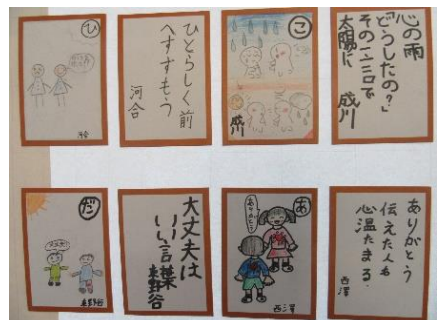 ひ
河合
ひとらしく前
へすすもう
河合
こ
成川
心の雨
「どうしたの?」
その一言で
太陽に
成川
だ
大丈夫は
いい言葉
あ
ありがとう
西澤
ありがとう
伝えた人も
心温たまる
西澤